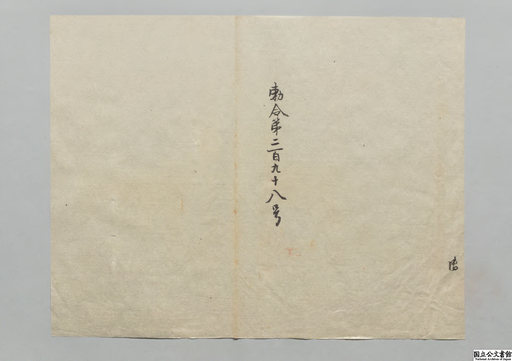 勅令第二百九十八号
国立公文書館
National Archives of Japan